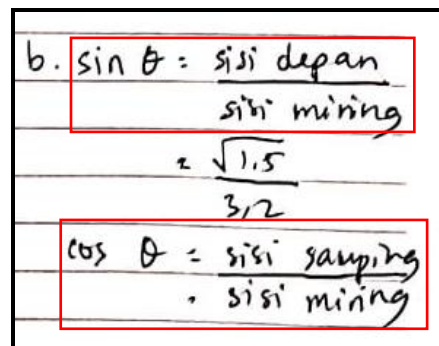 b. sin θ = sisi depan
sisi miring
= √1,5
3,2
cos θ = sisi samping
sisi miring